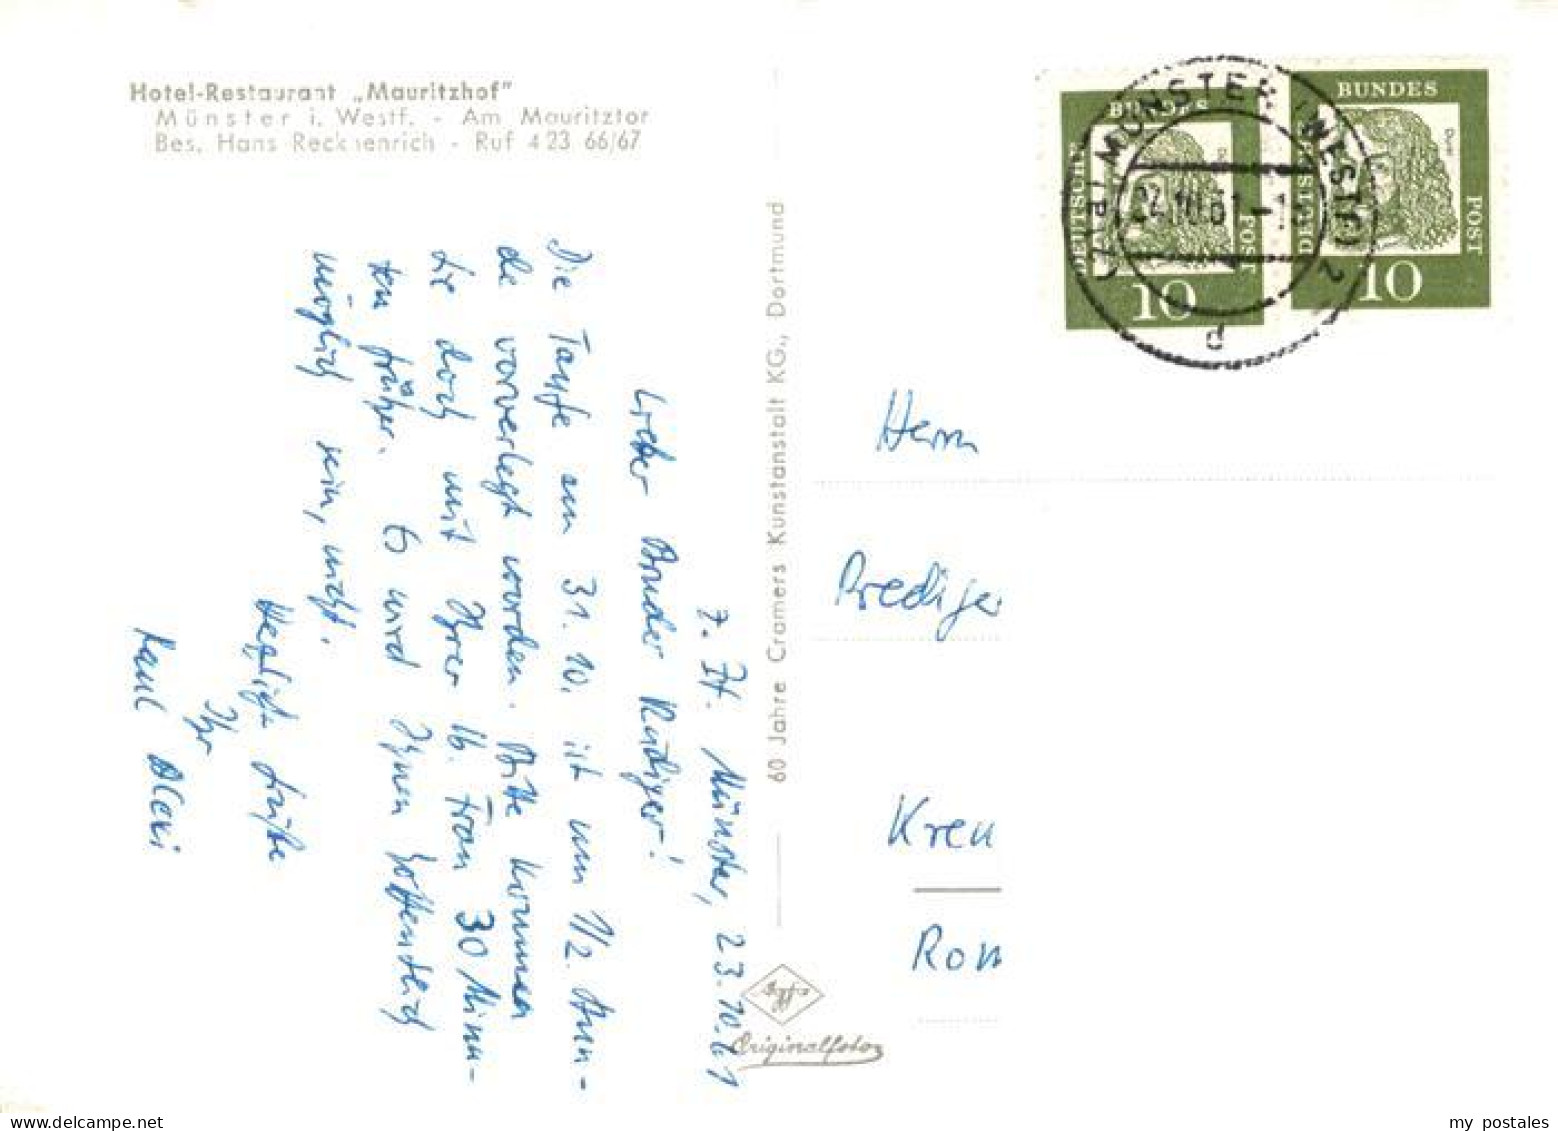 Hotel-Restaurant „Mauritzhof"
Münster i. Westf. - Am Mauritztor
Bes. Hans Recknenrich - Ruf 4 23 66/67
z. Zt. Münster, 23.10.61
Lieber Bruder Rüdiger!
Die Taufe am 31. 10. ist um 1/2 Stun-
de vorverlegt worden. Bitte kommen
Sie doch mit Ihrer lb. Frau 30 Minu-
ten früher. Es wird Ihnen hoffentlich
möglich sein, nicht.
Herzlichste Grüße
Ihr
Paul Alexi
60 Jahre Cramers Kunstanstalt KG., Dortmund
Agfa
Originalfoto
DEUTSCHE BUNDES POST
10
DEUTSCHE BUNDES POST
Dürer
10
MÜNSTER (WESTF) 2
24.10.61
d
Herrn
Prediger
Kreu
Rom
my postales